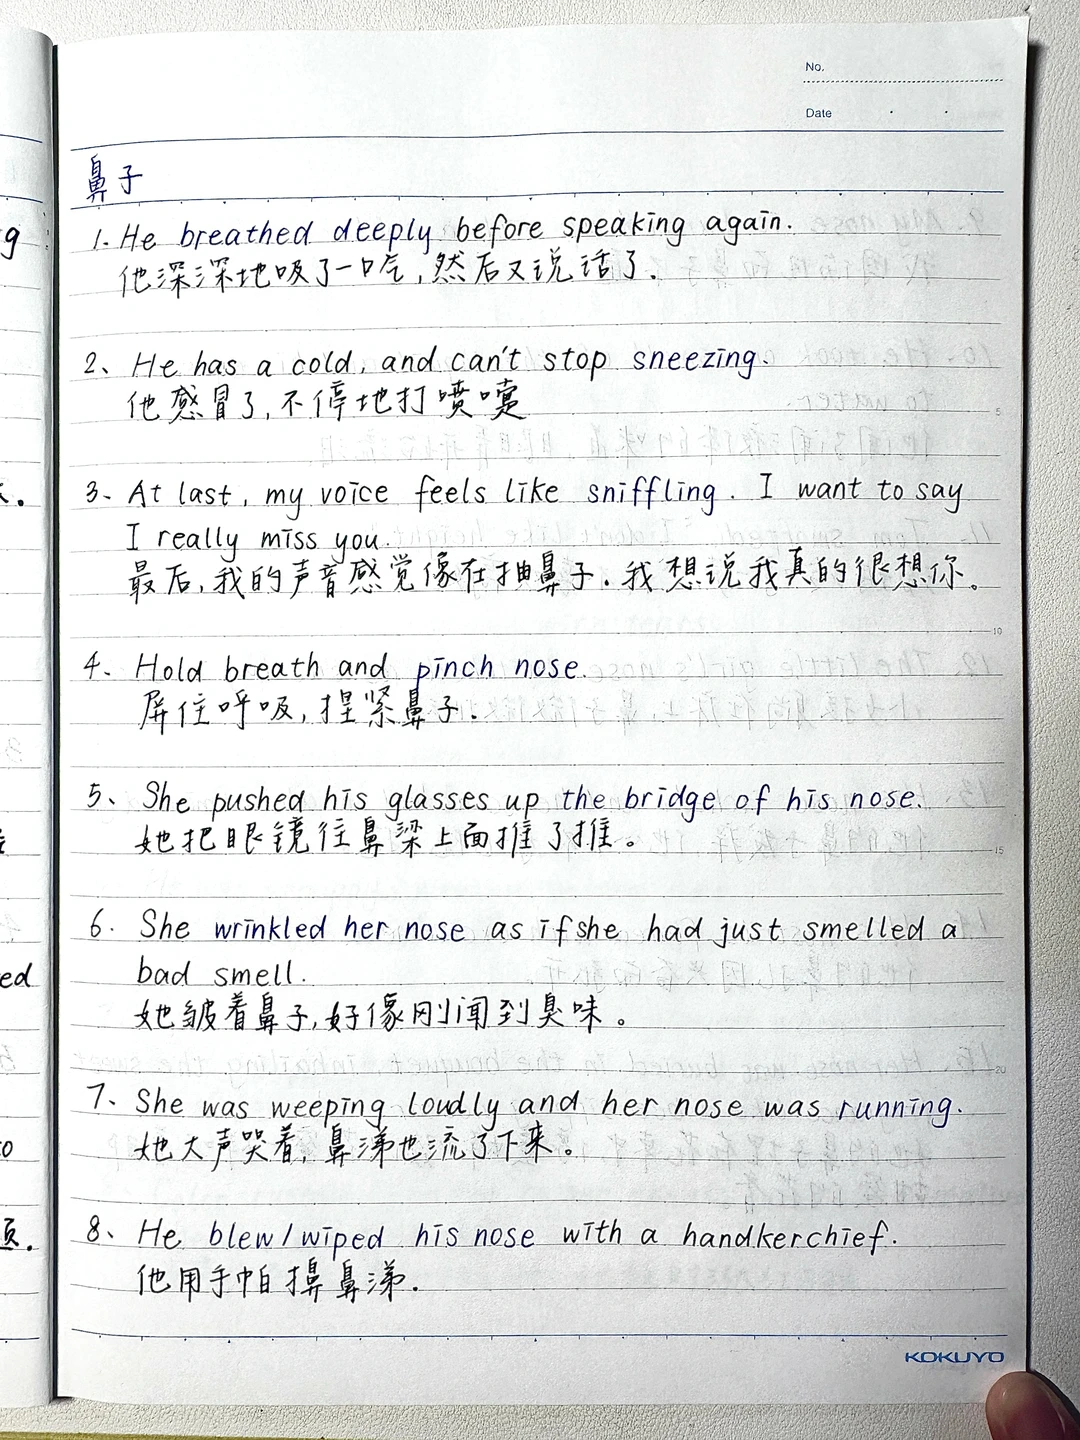 No.
Date
鼻子
1. He breathed deeply before speaking again.
他深深地吸了一口气,然后又说话了.
2、He has a cold, and can't stop sneezing.
他感冒了,不停地打喷嚏
3、At last, my voice feels like sniffling. I want to say
I really miss you.
最后,我的声音感觉像在抽鼻子.我想说我真的很想你。
4、Hold breath and pinch nose.
屏住呼吸,捏紧鼻子.
5、She pushed his glasses up the bridge of his nose.
她把眼镜往鼻梁上面推了推。
6. She wrinkled her nose as if she had just smelled a
bad smell.
她皱着鼻子,好像刚闻到臭味。
7、She was weeping loudly and her nose was running.
她大声哭着,鼻涕也流了下来。
8、He blew/wiped his nose with a handkerchief.
他用手帕擤鼻涕.
5
10
15
20
KOKUYO
g
ed
to